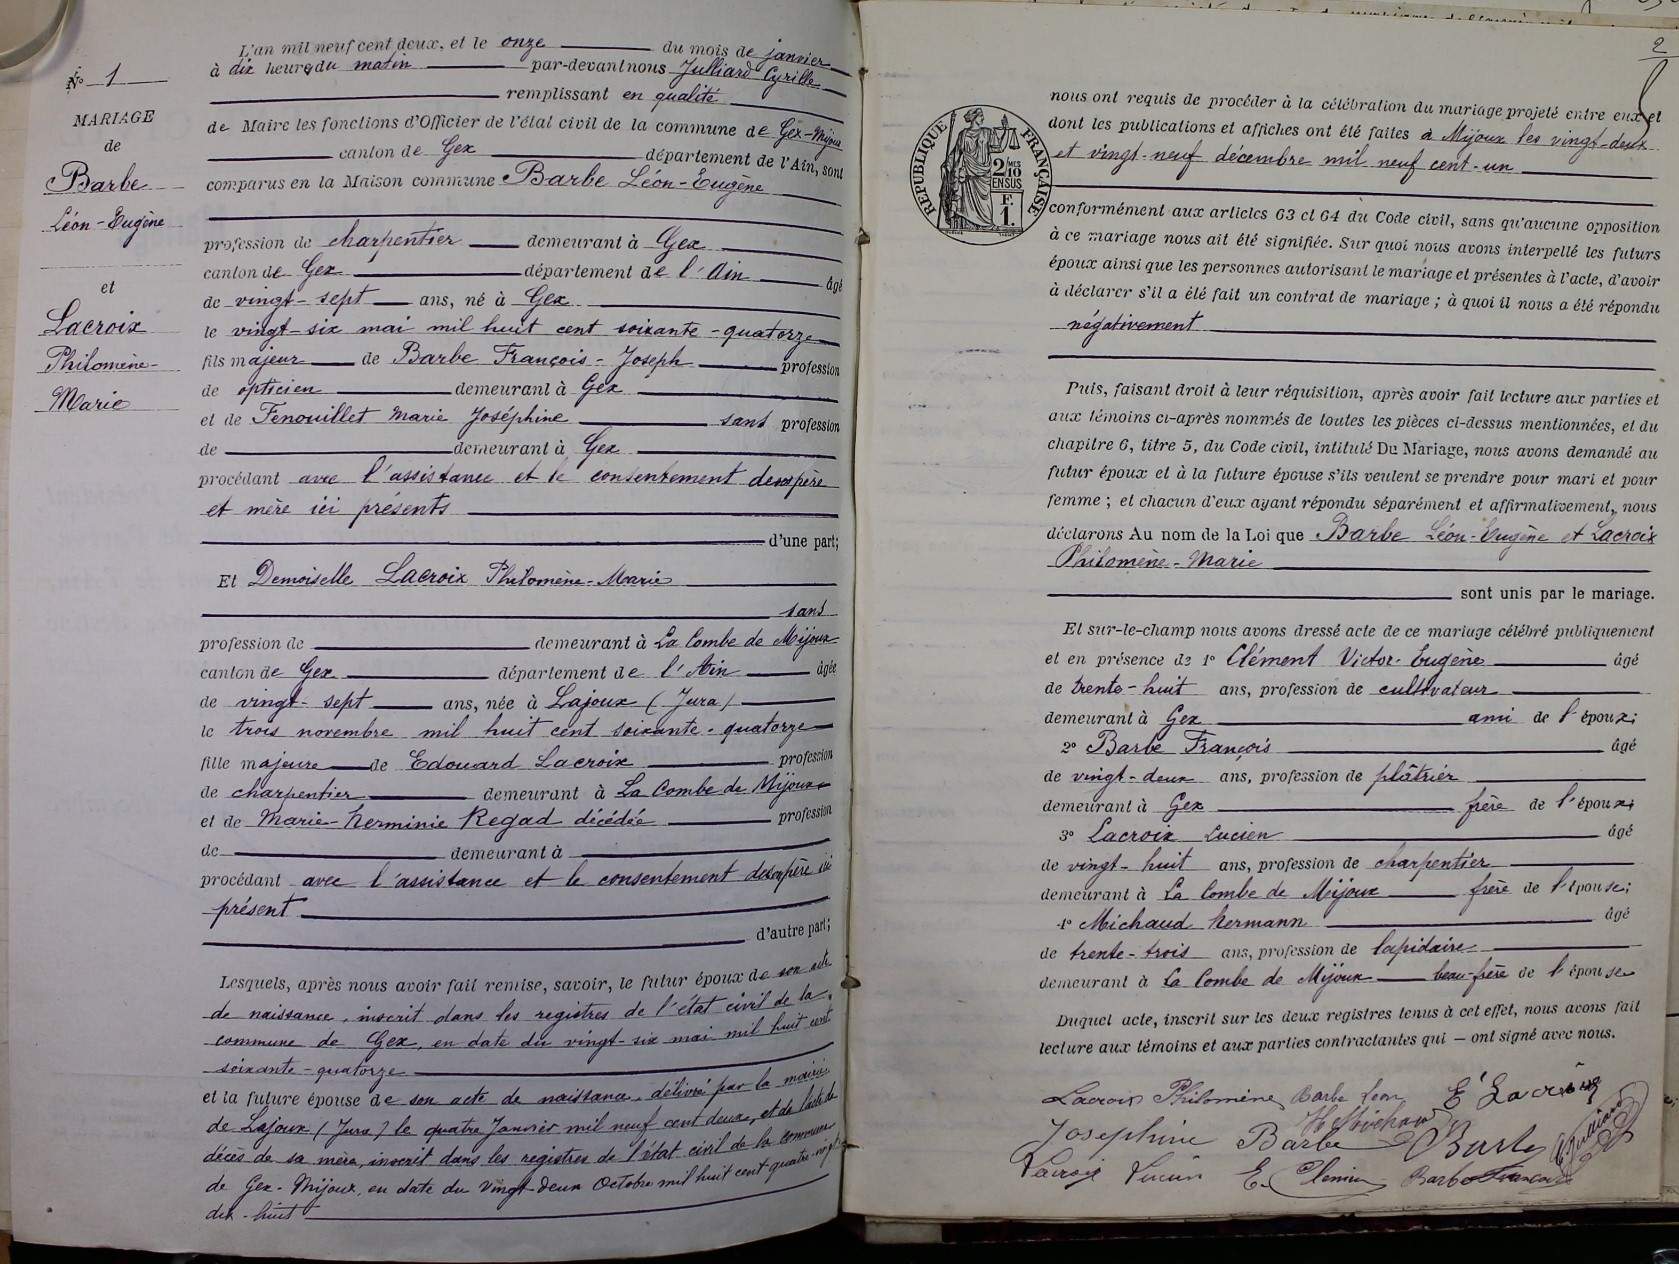 N° 1
MARIAGE
de
Barbe
Léon-Eugène
et
Lacroix
Philomène-
Marie
L'an mil neuf cent deux, et le onze du mois de janvier
à dix heures du matin par-devant nous Julliard Cyrille
remplissant en qualité
de Maire les fonctions d'Officier de l'état civil de la commune de Gex-Mijoux
canton de Gex département de l'Ain, sont
comparus en la Maison commune Barbe Léon-Eugène
profession de charpentier demeurant à Gex
canton de Gex département de l'Ain âgé
de vingt-sept ans, né à Gex
le vingt-six mai mil huit cent soixante-quatorze
fils majeur de Barbe François-Joseph profession
de opticien demeurant à Gex
et de Fenouillet Marie Joséphine sans profession
de demeurant à Gex
procédant avec l'assistance et le consentement de ses père
et mère ici présents
d'une part;
Et Demoiselle Lacroix Philomène-Marie
sans
profession de demeurant à La Combe de Mijoux
canton de Gex département de l'Ain âgée
de vingt-sept ans, née à Lajoux (Jura)
le trois novembre mil huit cent soixante-quatorze
fille majeure de Edouard Lacroix profession
de charpentier demeurant à La Combe de Mijoux
et de Marie-Herminie Regad décédée profession
de demeurant à
procédant avec l'assistance et le consentement de son père ici
présent
d'autre part;
Lesquels, après nous avoir fait remise, savoir, le futur époux de son acte
de naissance, inscrit dans les registres de l'état civil de la
commune de Gex, en date du vingt-six mai mil huit cent
soixante-quatorze
et la future épouse de son acte de naissance, délivré par la mairie
de Lajoux (Jura) le quatre Janvier mil neuf cent deux, et de l'acte de
décès de sa mère, inscrit dans les registres de l'état civil de la commune
de Gex-Mijoux, en date du vingt-deux Octobre mil huit cent quatre-vingt
dix-huit
2
RÉPUBLIQUE FRANÇAISE
2/10 EN SUS
F. 1.
nous ont requis de procéder à la célébration du mariage projeté entre eux et
dont les publications et affiches ont été faites à Mijoux les vingt-deux
et vingt-neuf décembre mil neuf cent-un
conformément aux articles 63 et 64 du Code civil, sans qu'aucune opposition
à ce mariage nous ait été signifiée. Sur quoi nous avons interpellé les futurs
époux ainsi que les personnes autorisant le mariage et présentes à l'acte, d'avoir
à déclarer s'il a été fait un contrat de mariage; à quoi il nous a été répondu
négativement
Puis, faisant droit à leur réquisition, après avoir fait lecture aux parties et
aux témoins ci-après nommés de toutes les pièces ci-dessus mentionnées, et du
chapitre 6, titre 5, du Code civil, intitulé Du Mariage, nous avons demandé au
futur époux et à la future épouse s'ils veulent se prendre pour mari et pour
femme; et chacun d'eux ayant répondu séparément et affirmativement, nous
déclarons Au nom de la Loi que Barbe Léon-Eugène et Lacroix
Philomène-Marie
sont unis par le mariage.
Et sur-le-champ nous avons dressé acte de ce mariage célébré publiquement
et en présence de 1° Clément Victor-Eugène âgé
de trente-huit ans, profession de cultivateur
demeurant à Gex ami de l'époux;
2° Barbe François âgé
de vingt-deux ans, profession de plâtrier
demeurant à Gex frère de l'époux;
3° Lacroix Lucien âgé
de vingt-huit ans, profession de charpentier
demeurant à La Combe de Mijoux frère de l'épouse;
4° Michaud Hermann âgé
de trente-trois ans, profession de lapidaire
demeurant à La Combe de Mijoux beau-frère de l'épouse
Duquel acte, inscrit sur les deux registres tenus à cet effet, nous avons fait
lecture aux témoins et aux parties contractantes qui – ont signé avec nous.
Lacroix Philomène Barbe Léon E Lacroix
H Michaud
Joséphine Barbe Barbe
Lacroix Lucien E. Clément Barbe François